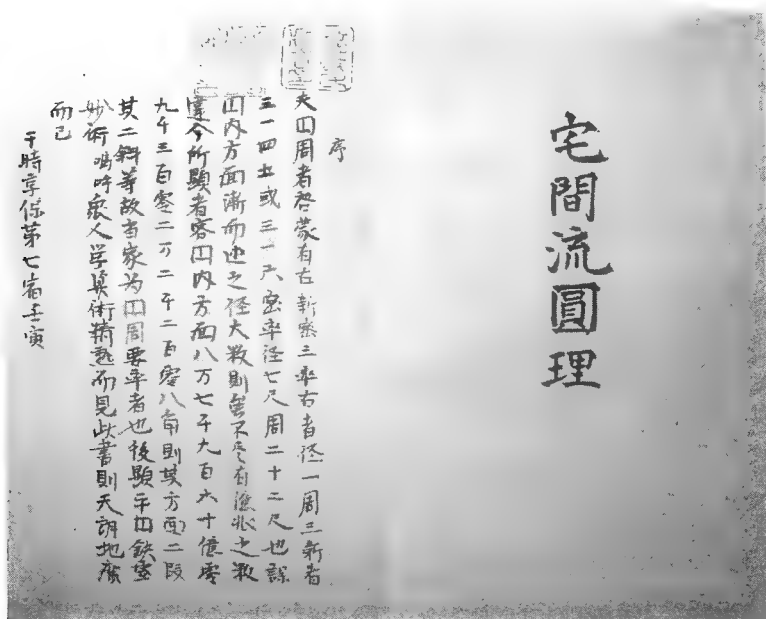 宅間流圓理
序
夫囗周者啓蒙有古新密三率古者径一周三新者
三一四士或三一六密率径七尺周二十二尺也
囗内方面漸而之径大数則不尽有之数
今所顕者容囗内方面八万七千九百六十億零
九千三百零二万二千二百零八角則其方面二段
其二斜等故当家為囗周要率者也後顕平囗
妙術嗚呼衆人学算術精熟而見此書則天朗地広
而已
于時享保第七宿壬寅